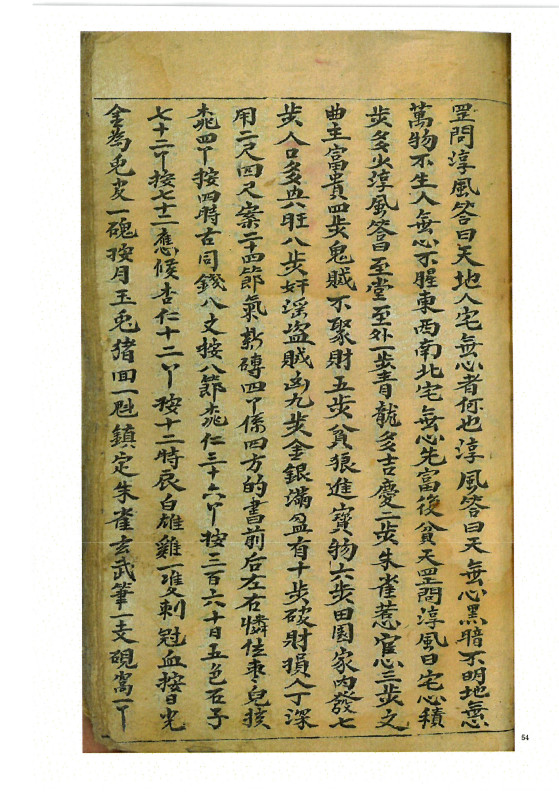 罡問淳風答曰天地人宅無心者何也淳風答曰天無心黑暗不明地無心
萬物不生人無心不腥東西南北宅無心先富後貧天罡問淳風曰宅心積
步多少淳風答曰至堂至外一步青龍多吉慶二步朱雀惹官心三步文
曲主富貴四步鬼賊不聚財五步貪狼進寳物六步田园家內發七
步人口多兴旺八步奸滛盗賊凶九步金銀滿盈有十步破財損人丁深
用二尺四尺案二十四節氣新磚四丫係四方的書前后左右憐住枣兒孩
桃四丫按四時古同錢八文按八節桃仁三十六丫按三百六十日五色石子
七十二丫按七十二應候杏仁十二丫按十二時辰白雄雞一隻刺冠血按日光
金為兎皮一磈按月玉兎猪回一尅鎮定朱雀玄武筆一支硯窩一丫
54